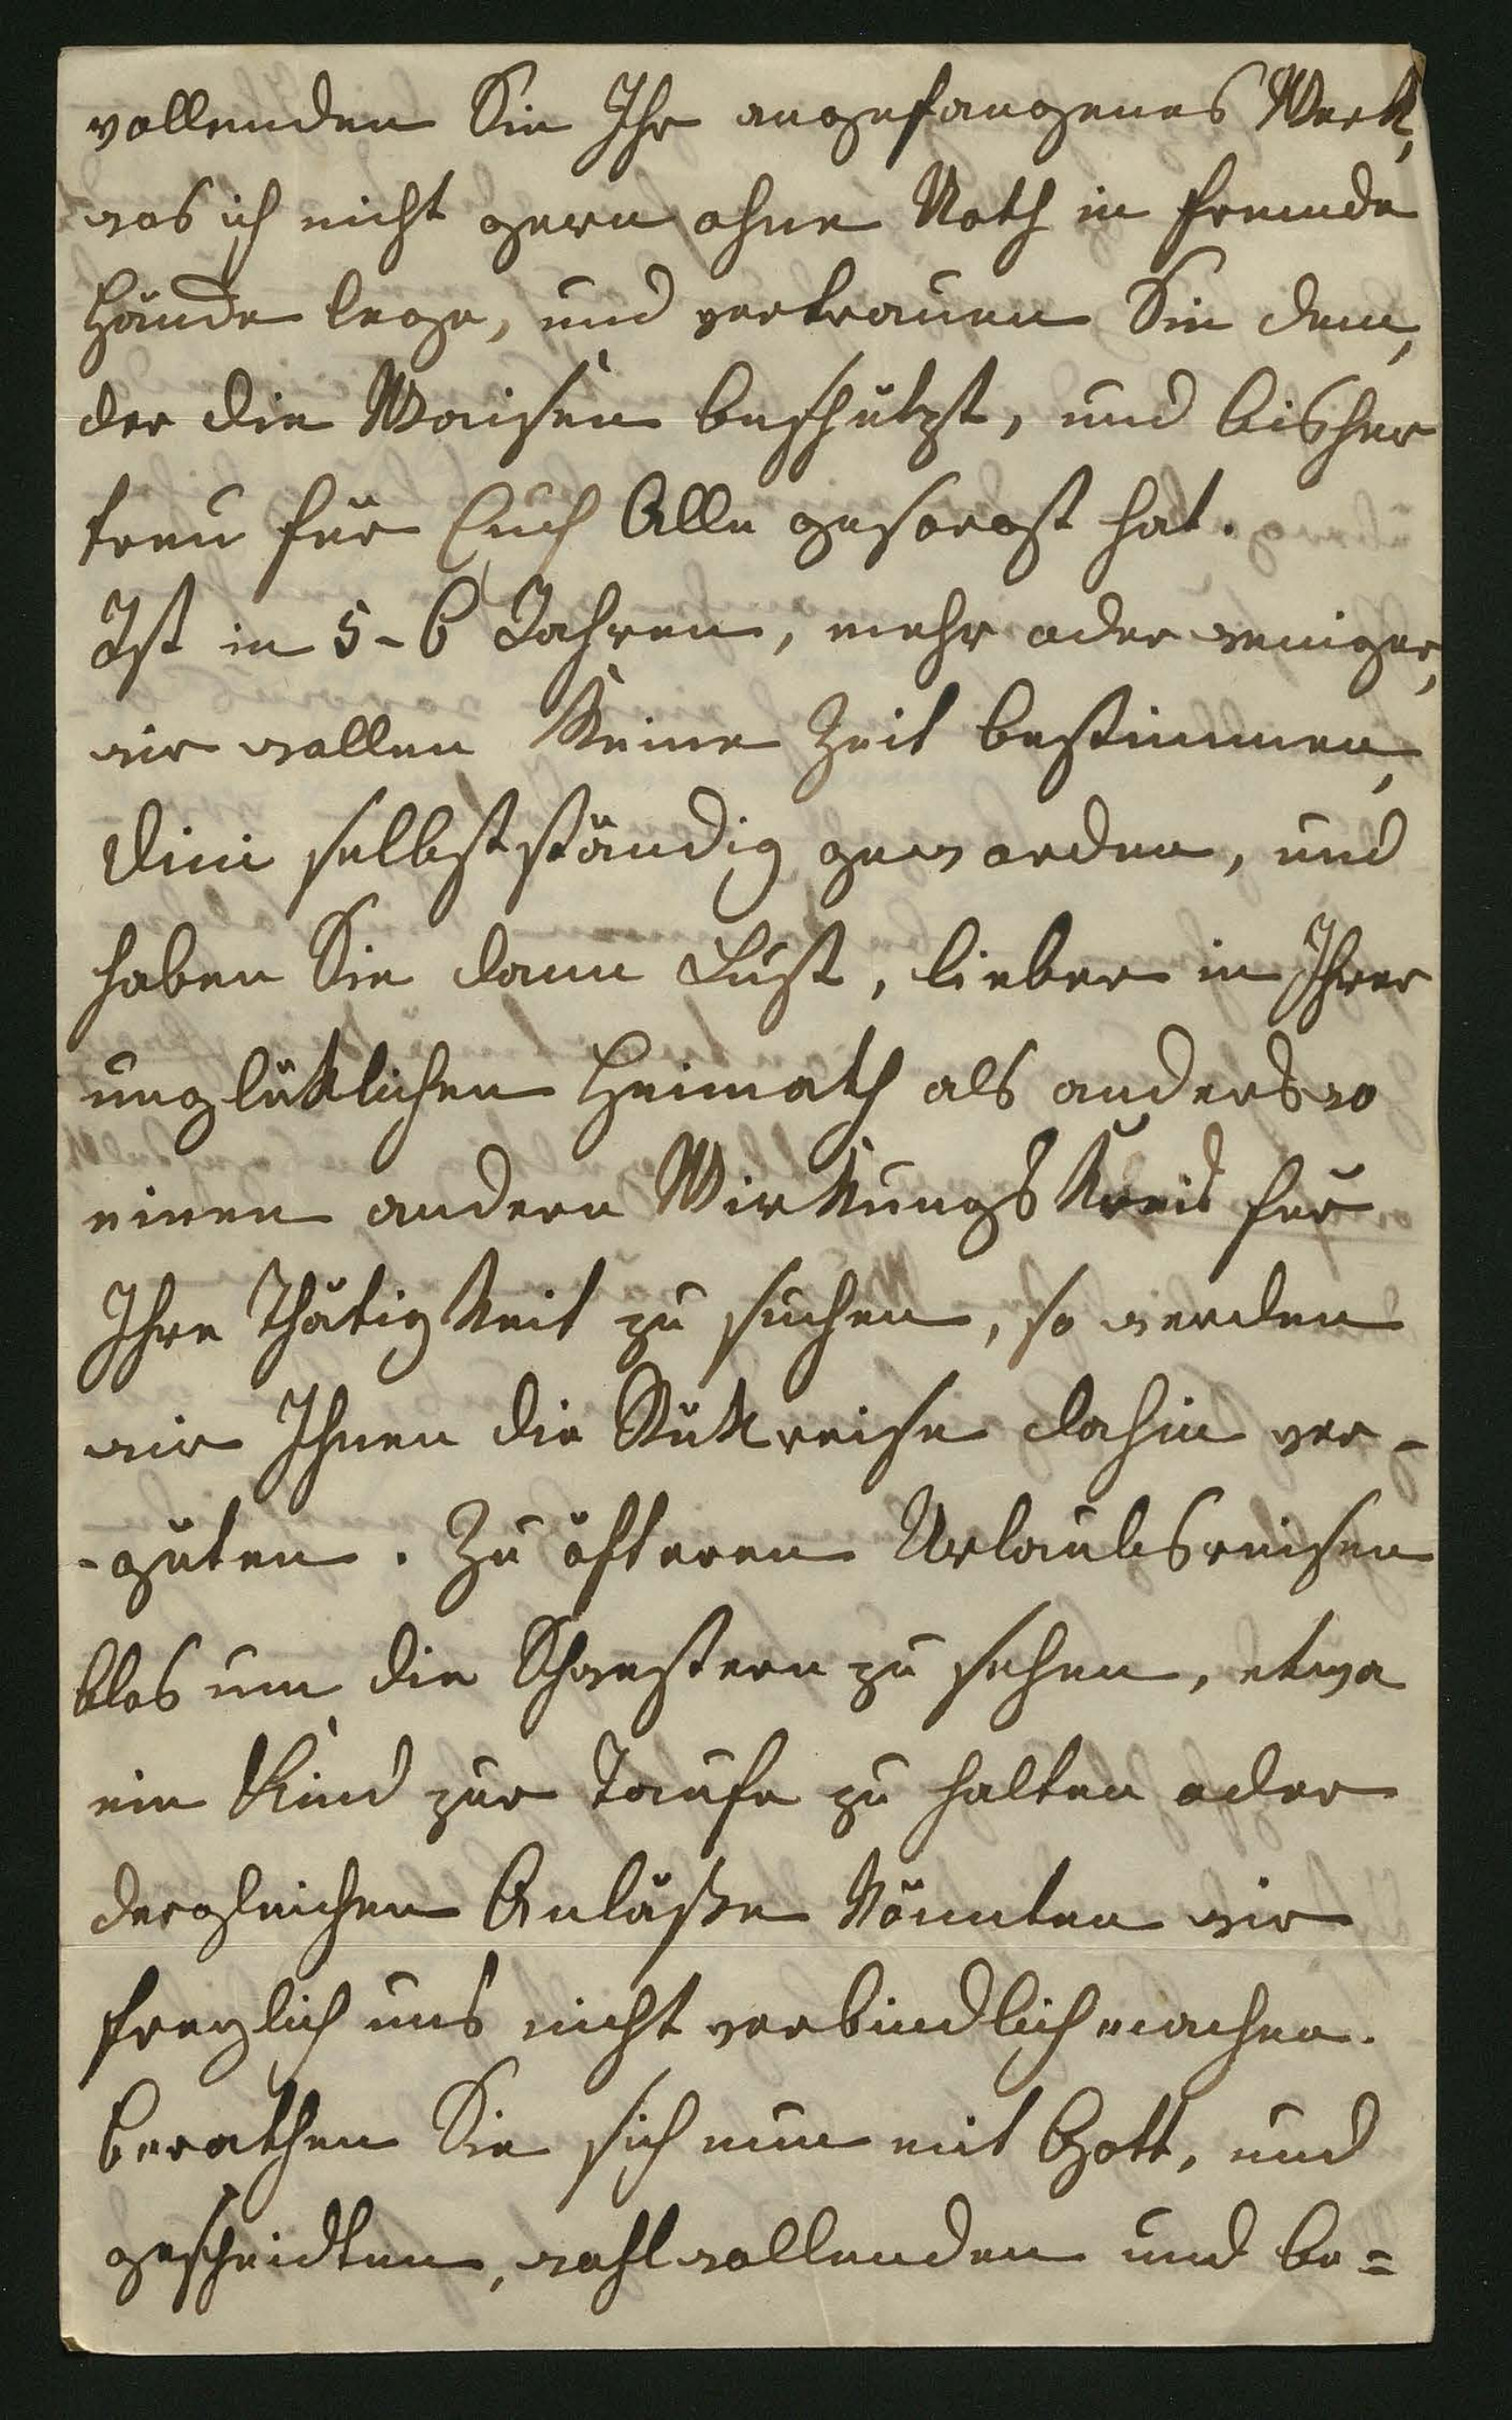 vollenden Sie Ihr angefangenes Werk,
was ich nicht gern ohne Noth in fremde
Hände lege, und vertrauen Sie dem,
der die Waisen beschützt, und bisher
treu für Euch Alle gesorgt hat.
Ist in 5-6 Jahren, mehr oder weniger,
wir wollen keine Zeit bestimmen,
Dini selbstständig geworden, und
haben Sie dann Lust, lieber in Ihrer
unglüklichen Heimath als anderswo
einen andern Wirkungskreis für
Ihre Thätigkeit zu suchen, so werden
wir Ihnen die Rükreise dahin ver-
-güten. Zu öfteren Urlaubsreisen
blos um die Schwestern zu sehen, etwa
ein Kind zur Taufe zu halten oder
dergleichen Anläße könnten wir
freylich uns nicht verbindlich machen.
Berathen Sie sich nun mit Gott, und
gescheidten, wohlwollenden und be=